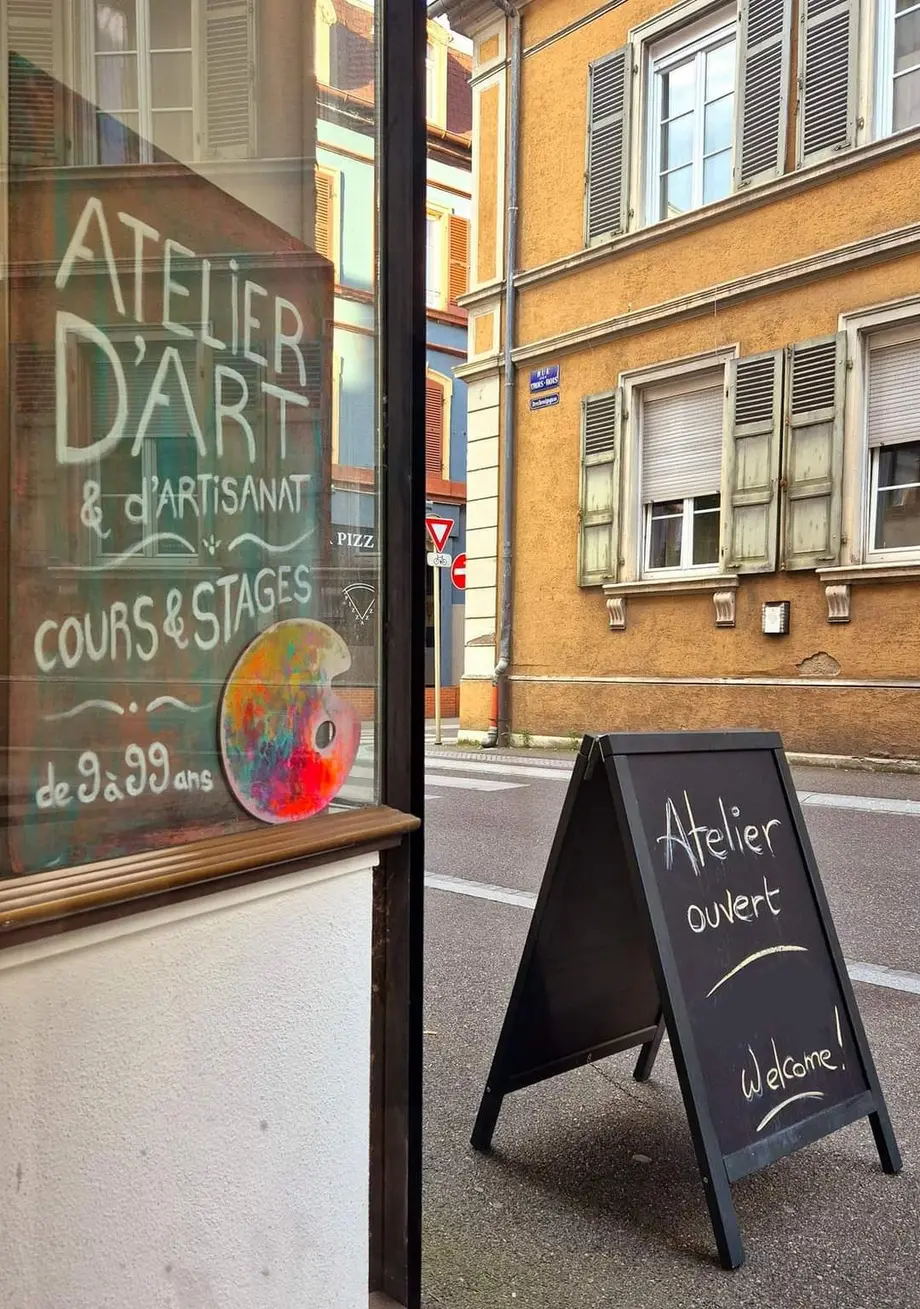 ATELiER
D'ART
& d'ARTiSANAT
COURS & STAGES
de 9 à 99 ans
PIZZ
RUE
Atelier
ouvert
Welcome!